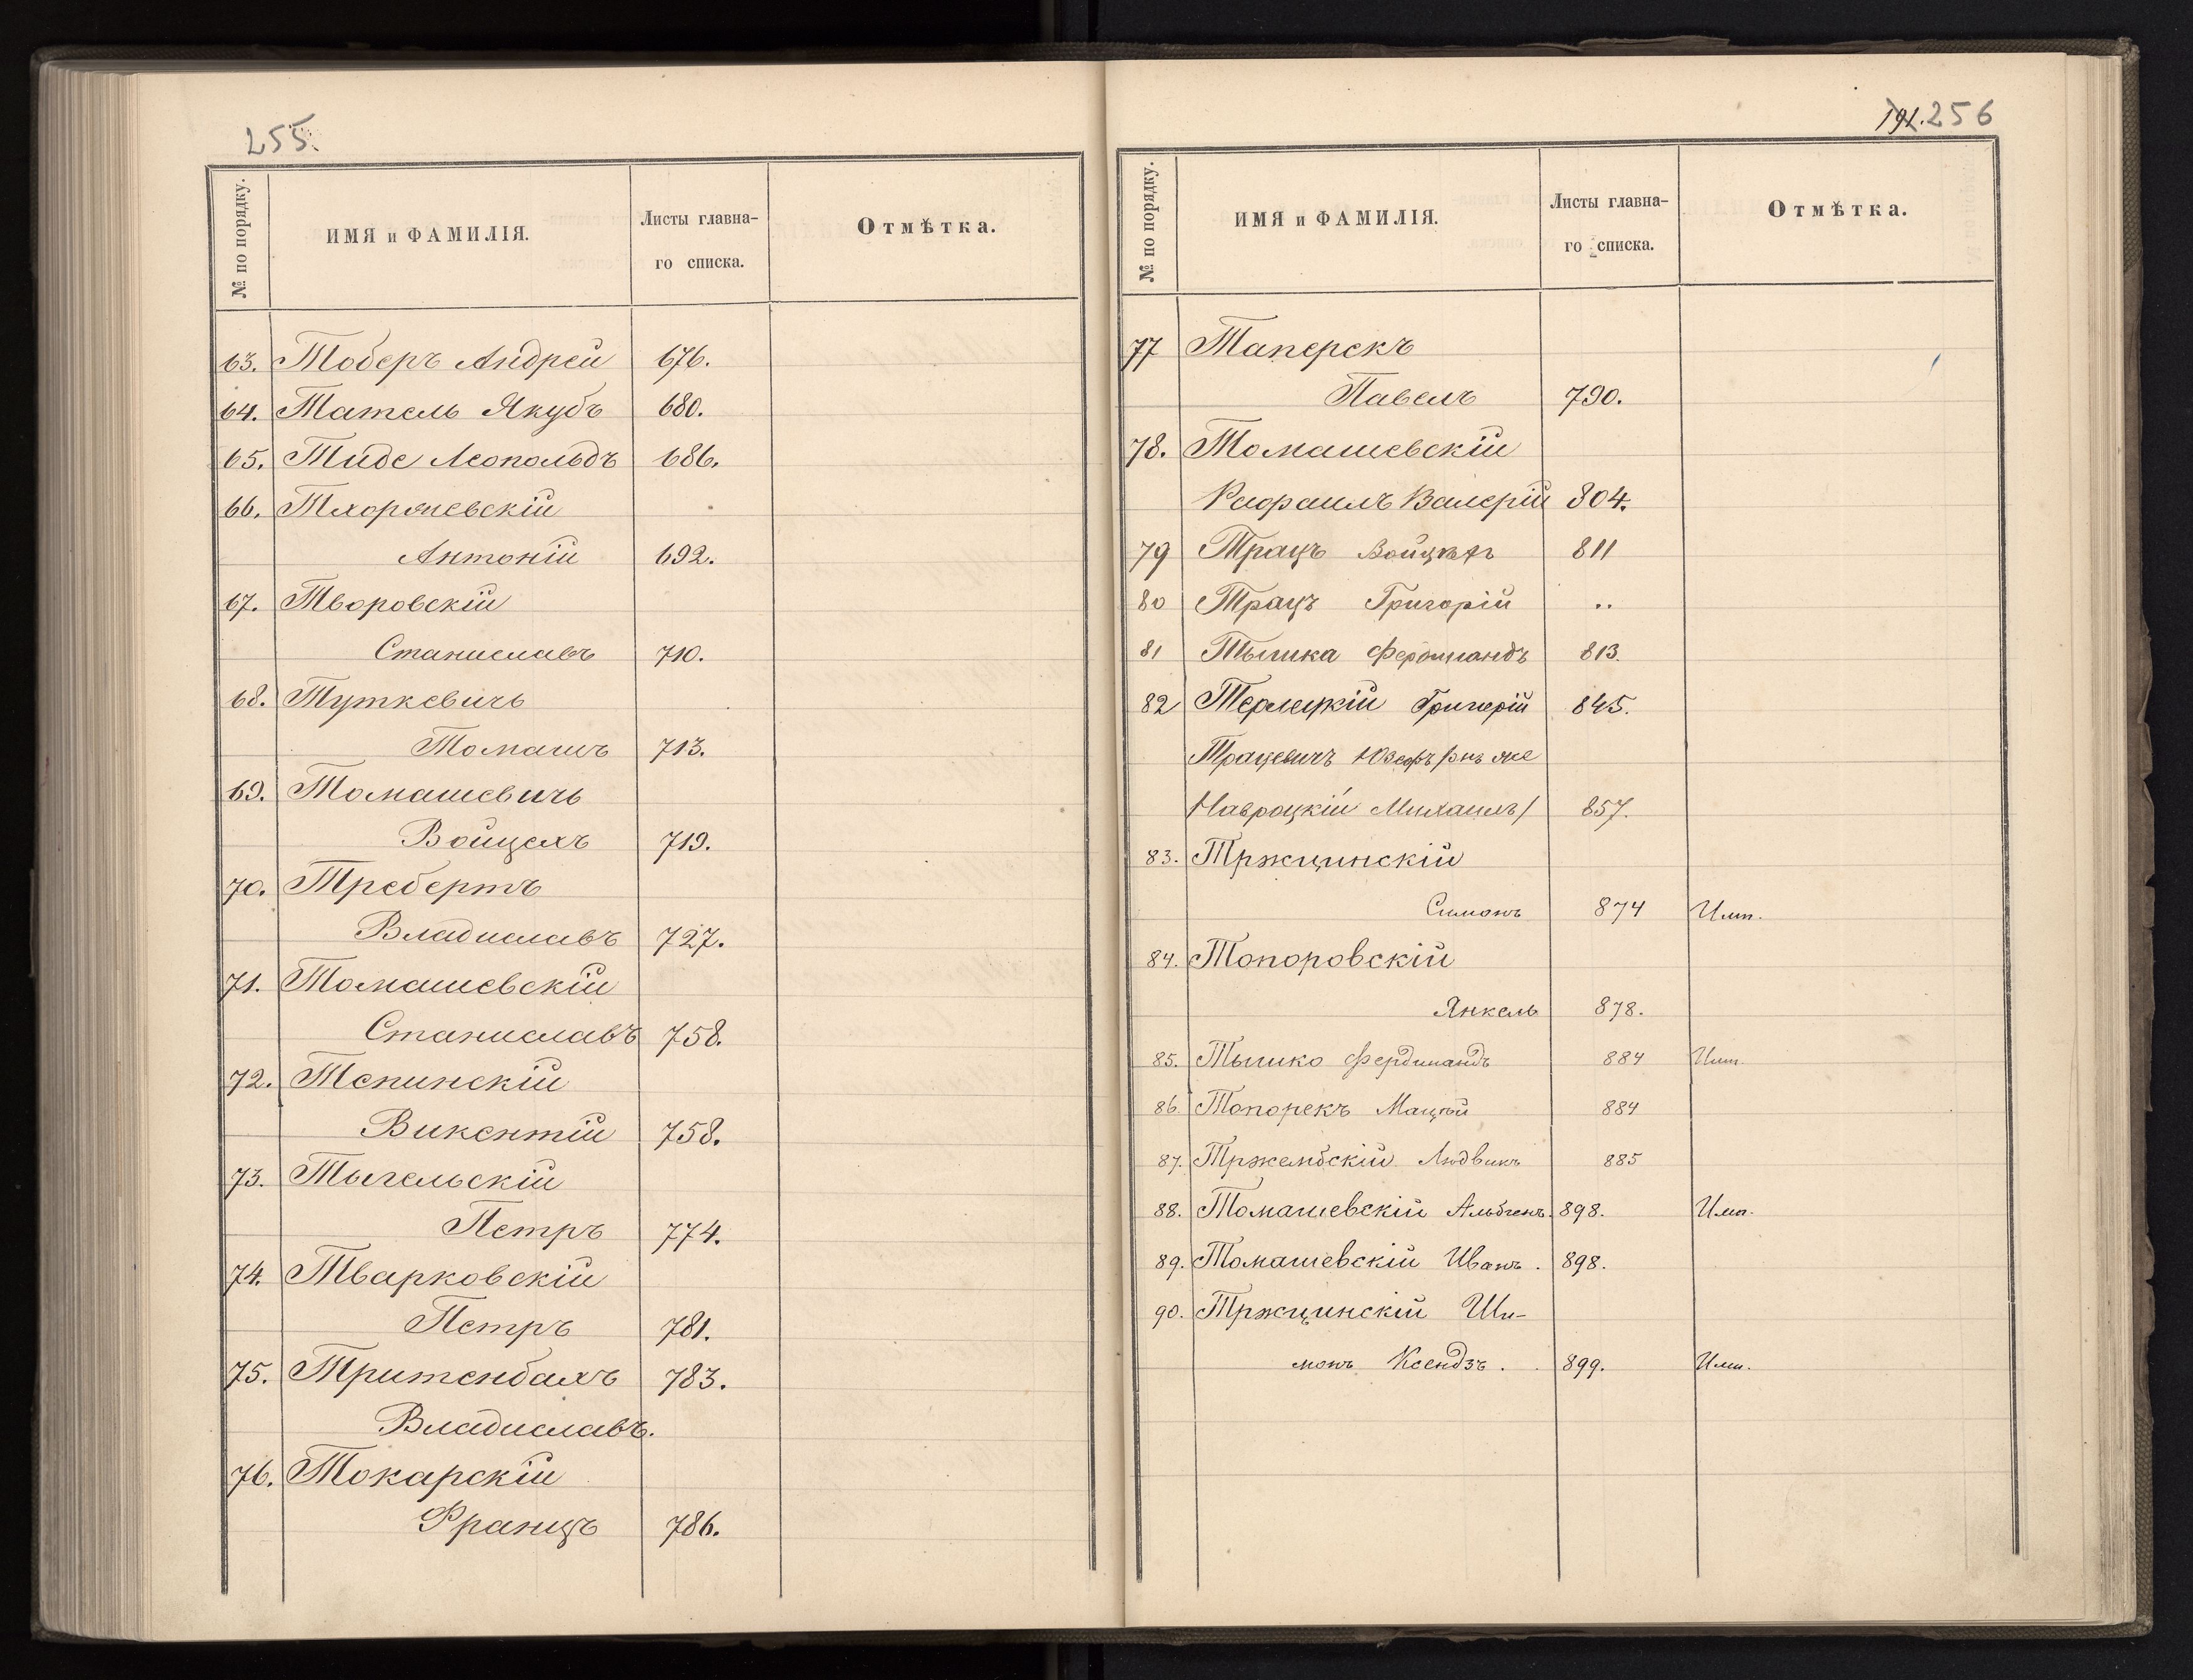 255.
№ по порядку.
ИМЯ и ФАМИЛІЯ.
Листы главна-
го списка.
Отмѣтка.
63. Тоберъ Андрей 676.
64. Татель Якубъ 680.
65. Тиде Леопольдъ 686.
66. Тхоржевскій
Антоній 692.
67. Творовскій
Станиславъ 710.
68. Туткевичъ
Томашъ 713.
69. Томашевичъ
Войцехъ 719.
70. Требертъ
Владиславъ 727.
71. Томашевскій
Станиславъ 758.
72. Тепинскій
Викентій 758.
73. Тыгельскій
Петръ 774.
74. Тварковскій
Петръ 781.
75. Тритенбахъ 783.
Владиславъ.
76. Токарскій
Францъ 786.
191. 256
№ по порядку.
ИМЯ и ФАМИЛІЯ.
Листы главна-
го списка.
Отмѣтка.
77 Таперекъ
Павелъ 790.
78. Томашевскій
Рафаилъ Валерій 804.
79 Трацъ Войцѣхъ 811
80 Трацъ Григорій ..
81 Тышка Фердинандъ 813.
82 Терлецкій Григорій 845.
Трацевичъ Юзефъ /онъ же
Навроцкій Михаилъ/ 857.
83. Тржцинскій
Симонъ 874 Имп.
84. Топоровскій
Янкель 878.
85. Тышко Фердинандъ 884 Имп.
86. Топорекъ Мацѣй 884
87. Тржембскій Людвикъ 885
88. Томашевскій 898. Имп.
89. Томашевскій Иванъ. 898.
90. Тржцинскій Ши-
монъ Ксендзъ. 899. Имп.